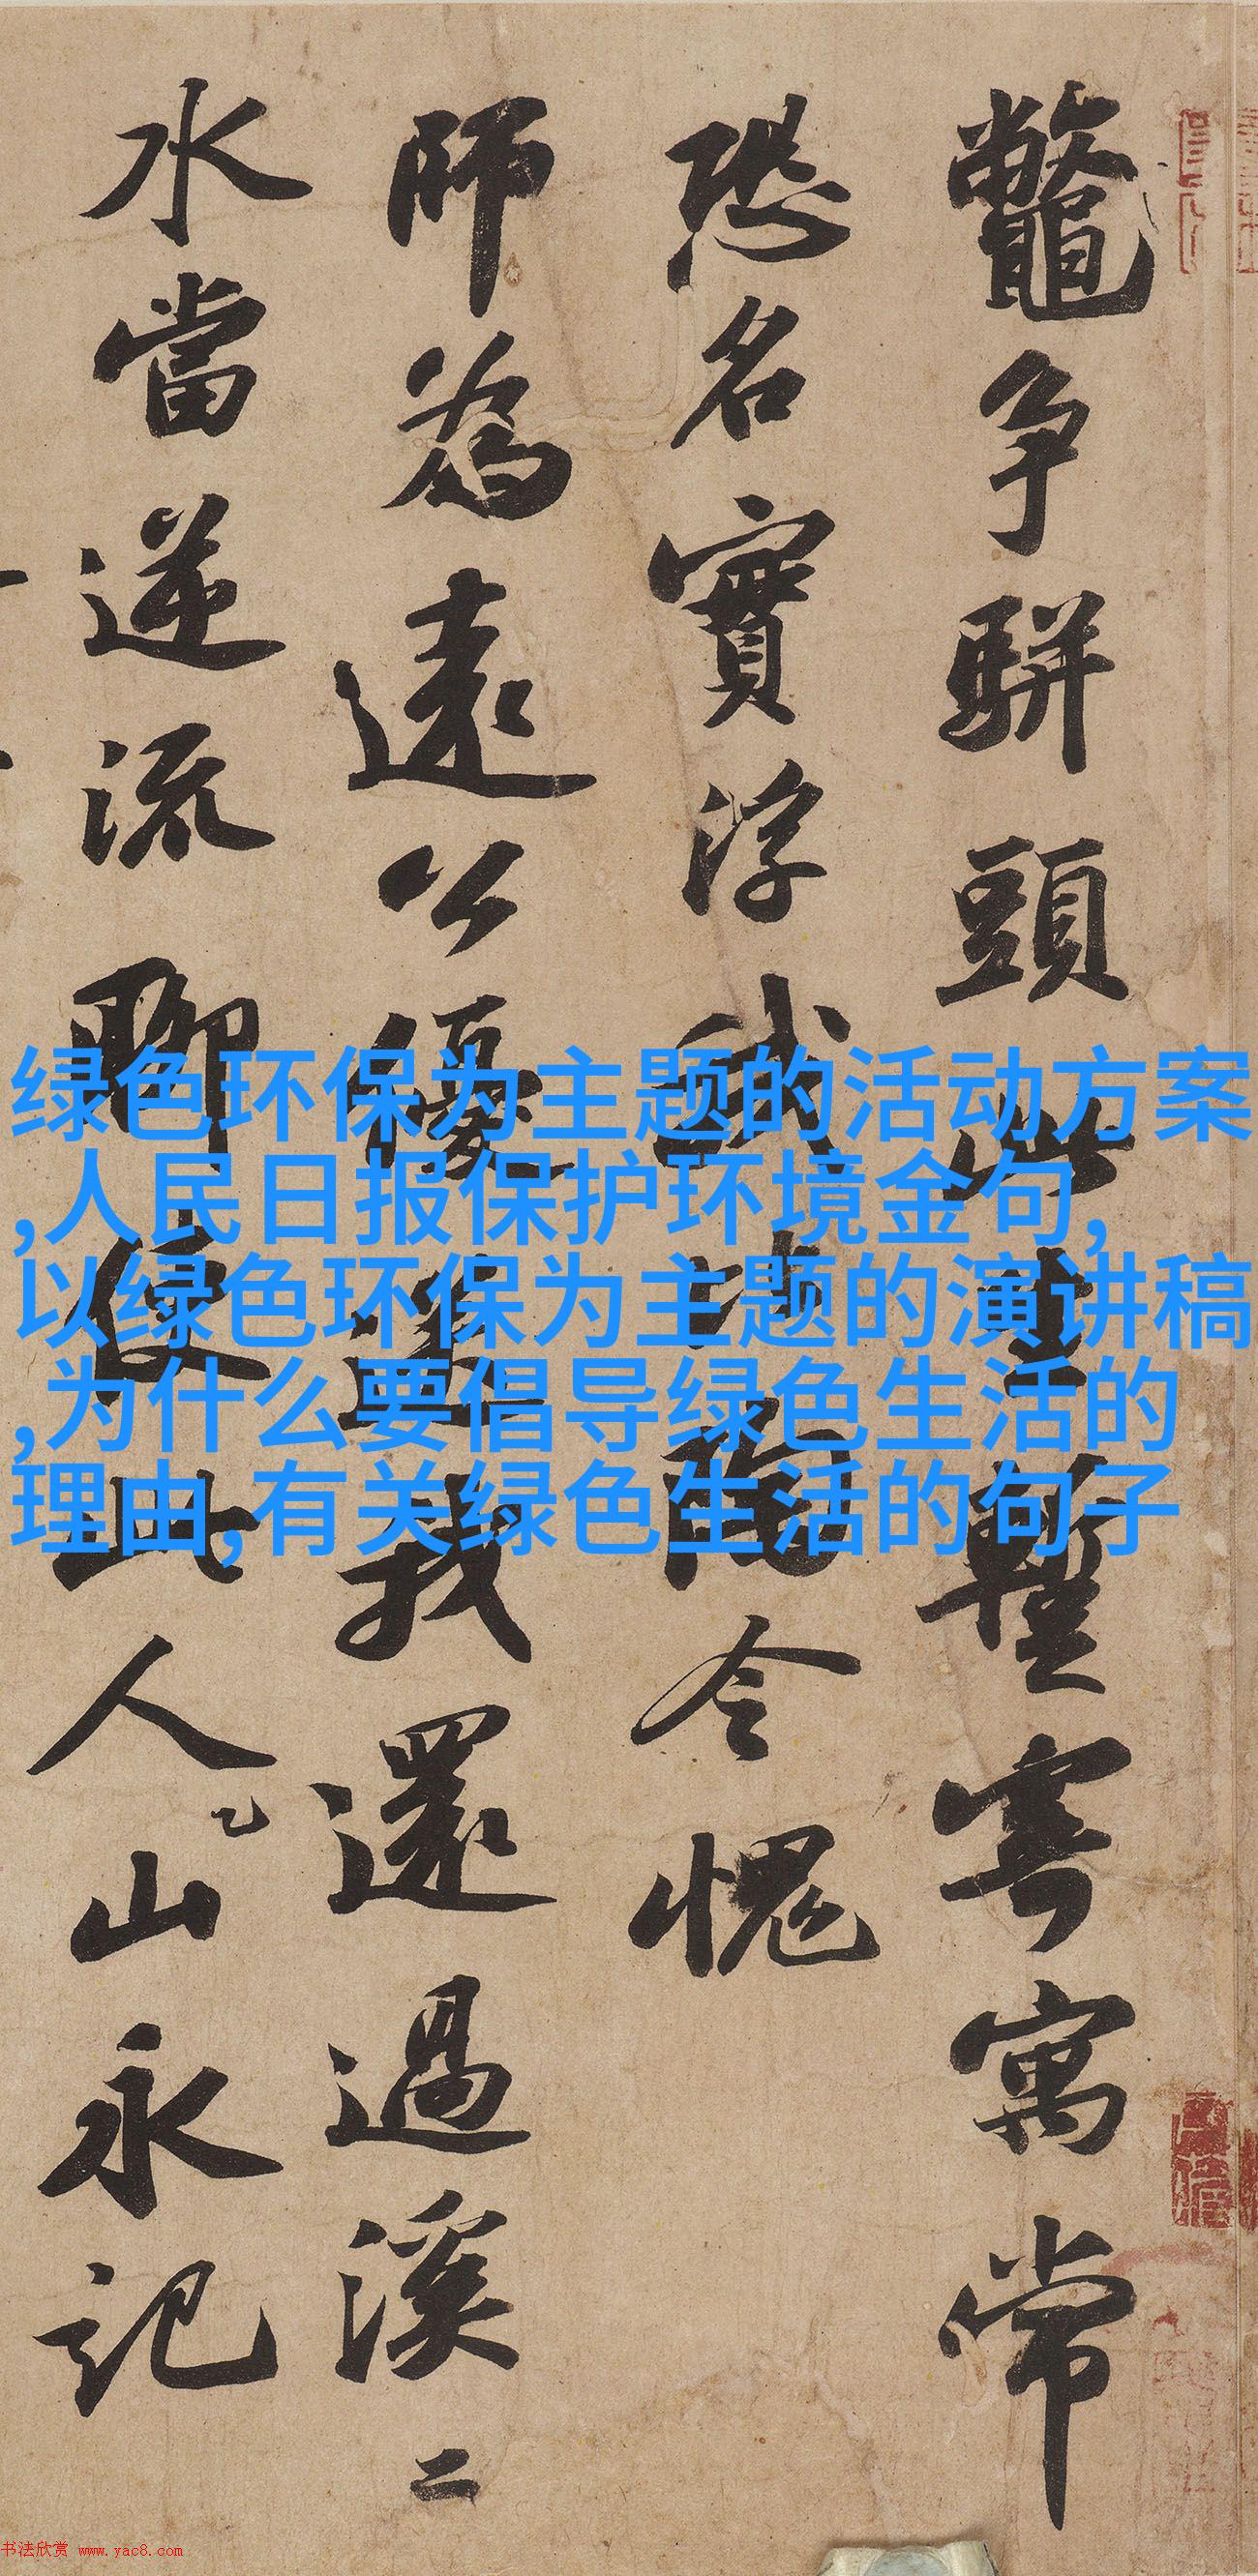 鼈争駢頭此生暫寄寓常
恐名實浮我比陶令愧
師為遠公優送我還過溪二
水當逆流聊使此人山永記
绿色环保为主题的活动方案
,人民日报保护环境金句,
以绿色环保为主题的演讲稿
,为什么要倡导绿色生活的
理由,有关绿色生活的句子
书法欣赏 www.yac8.com